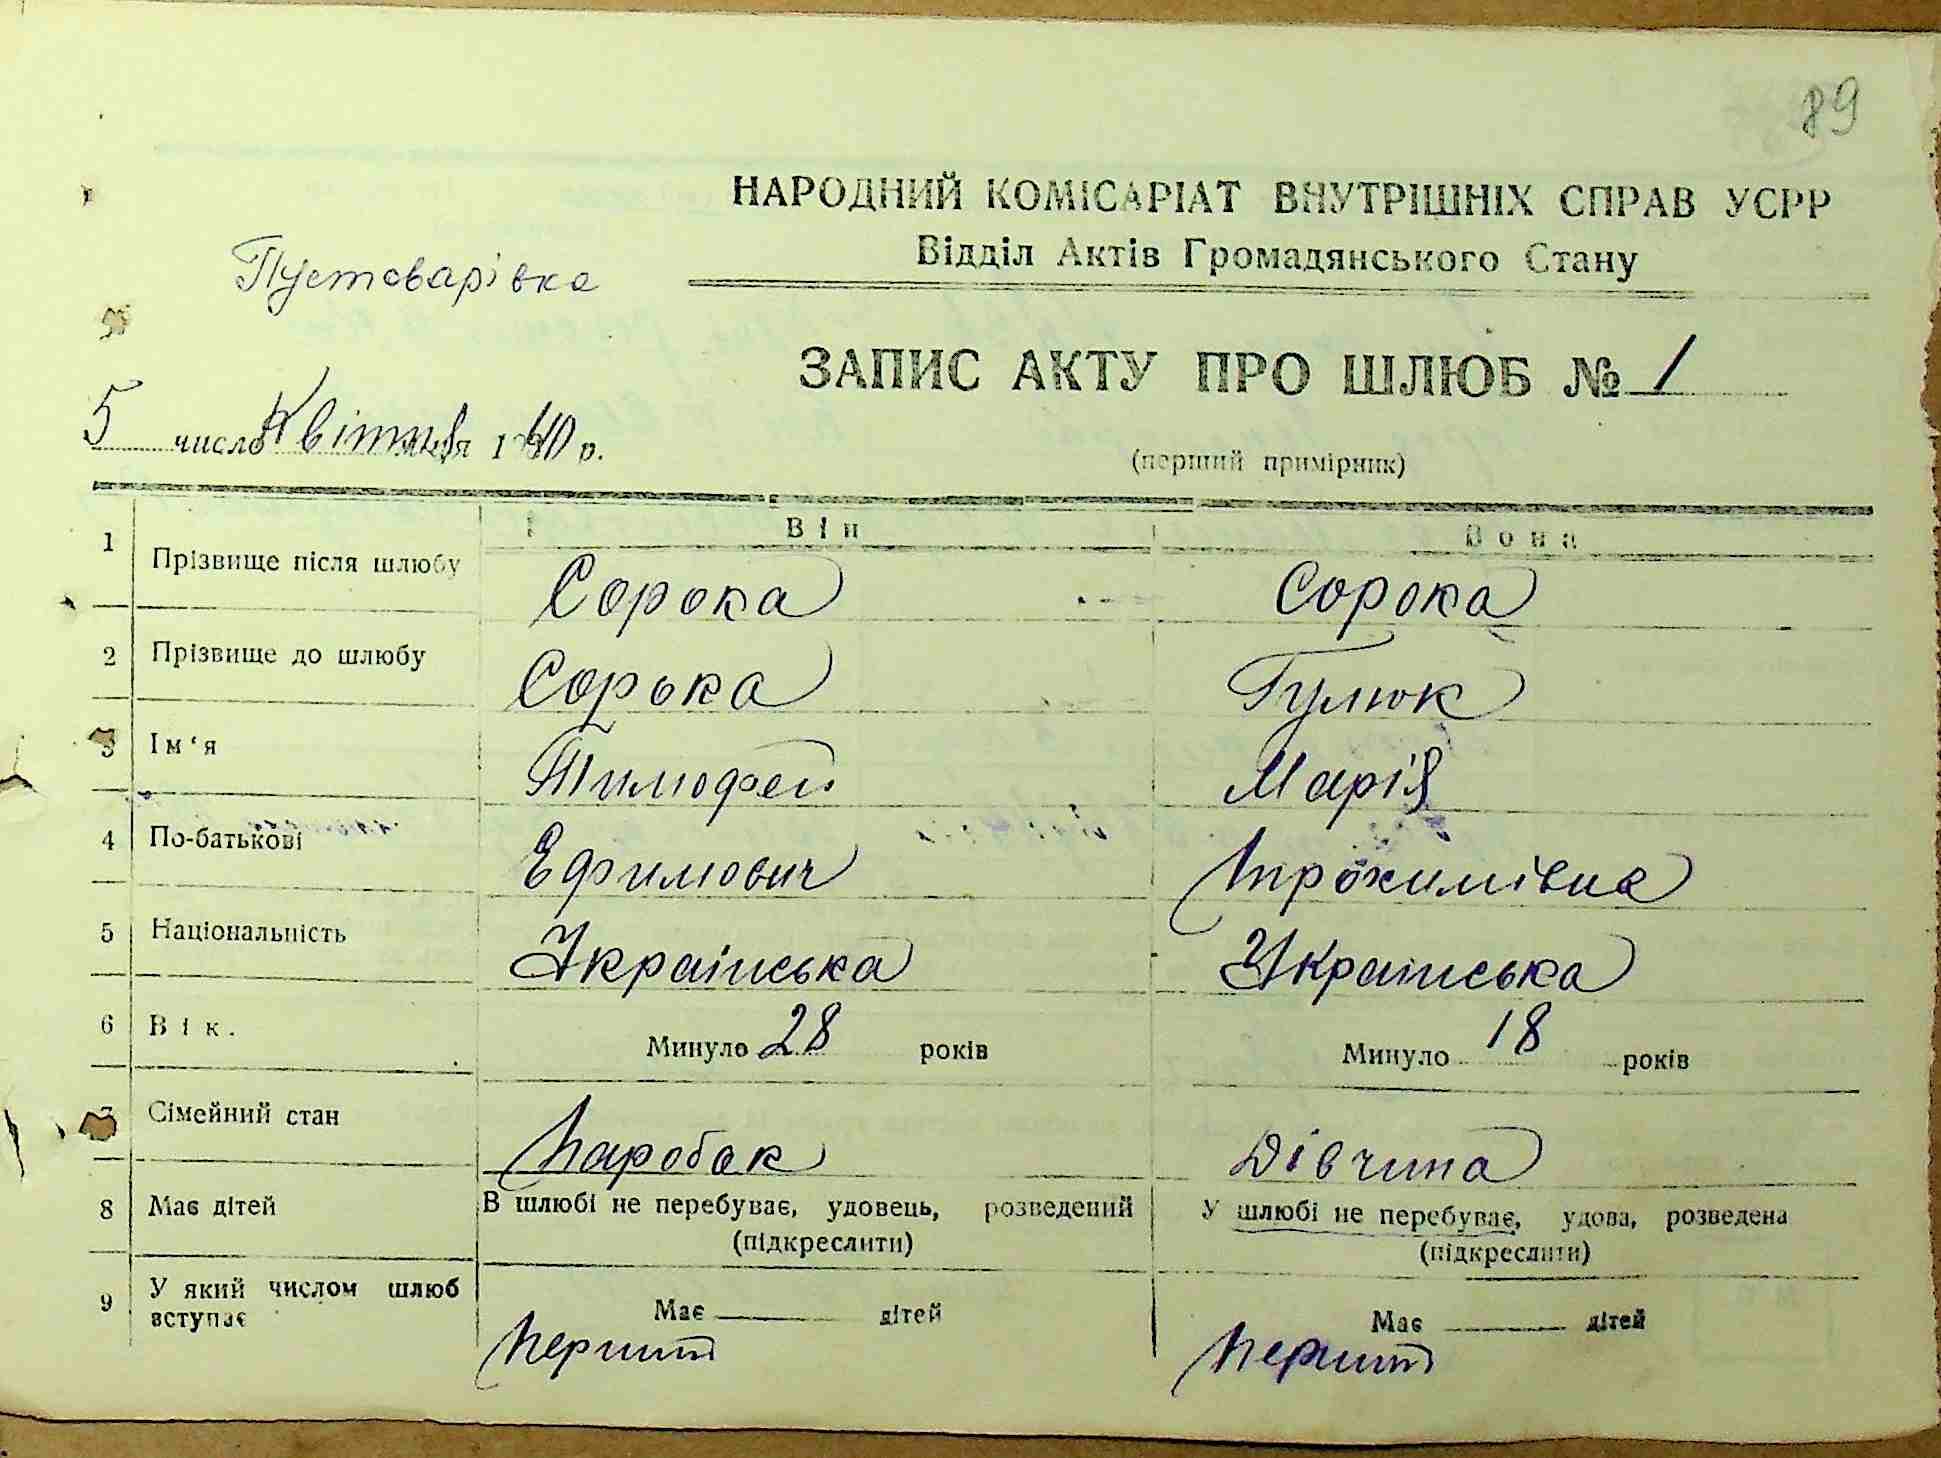 89
НАРОДНИЙ КОМІСАРІАТ ВНУТРІШНІХ СПРАВ УСРР
Відділ Актів Громадянського Стану
Пустоварівка
ЗАПИС АКТУ ПРО ШЛЮБ № 1
5 число Квітня 1940 р.
(перший примірник)
Він Вона
1 Прізвище після шлюбу Сорока Сорока
2 Прізвище до шлюбу Сорока Гулюк
3 Ім‘я Тимофей Марія
4 По-батькові Ефимович Трохимівна
5 Національність Українська Українська
6 Вік. Минуло 28 років Минуло 18 років
7 Сімейний стан Паробок Дівчина
8 Має дітей В шлюбі не перебуває, удовець, розведений У шлюбі не перебуває, удова, розведена
(підкреслити) (підкреслити)
9 У який числом шлюб вступає Має дітей Має дітей
Перший Перший